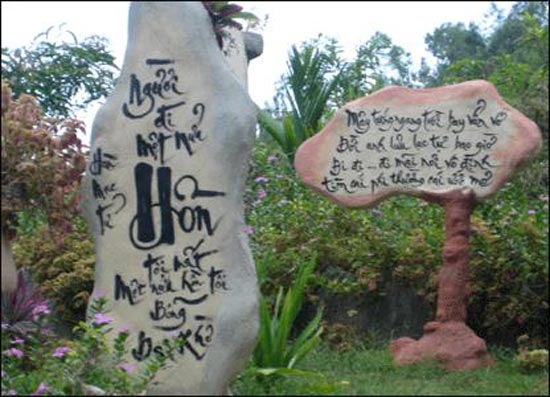 Người
đi
một nửa
Hồn
tôi mất
Một nửa hồn tôi
Bỗng
Dại Khờ
Hàn
Mặc
Tử
Mây trắng ngang trời bay vẩn vơ
Đời anh lưu lạc tự bao giờ
Đi đi... đi mãi nơi vô định
Tìm cái phi thường cái ước mơ